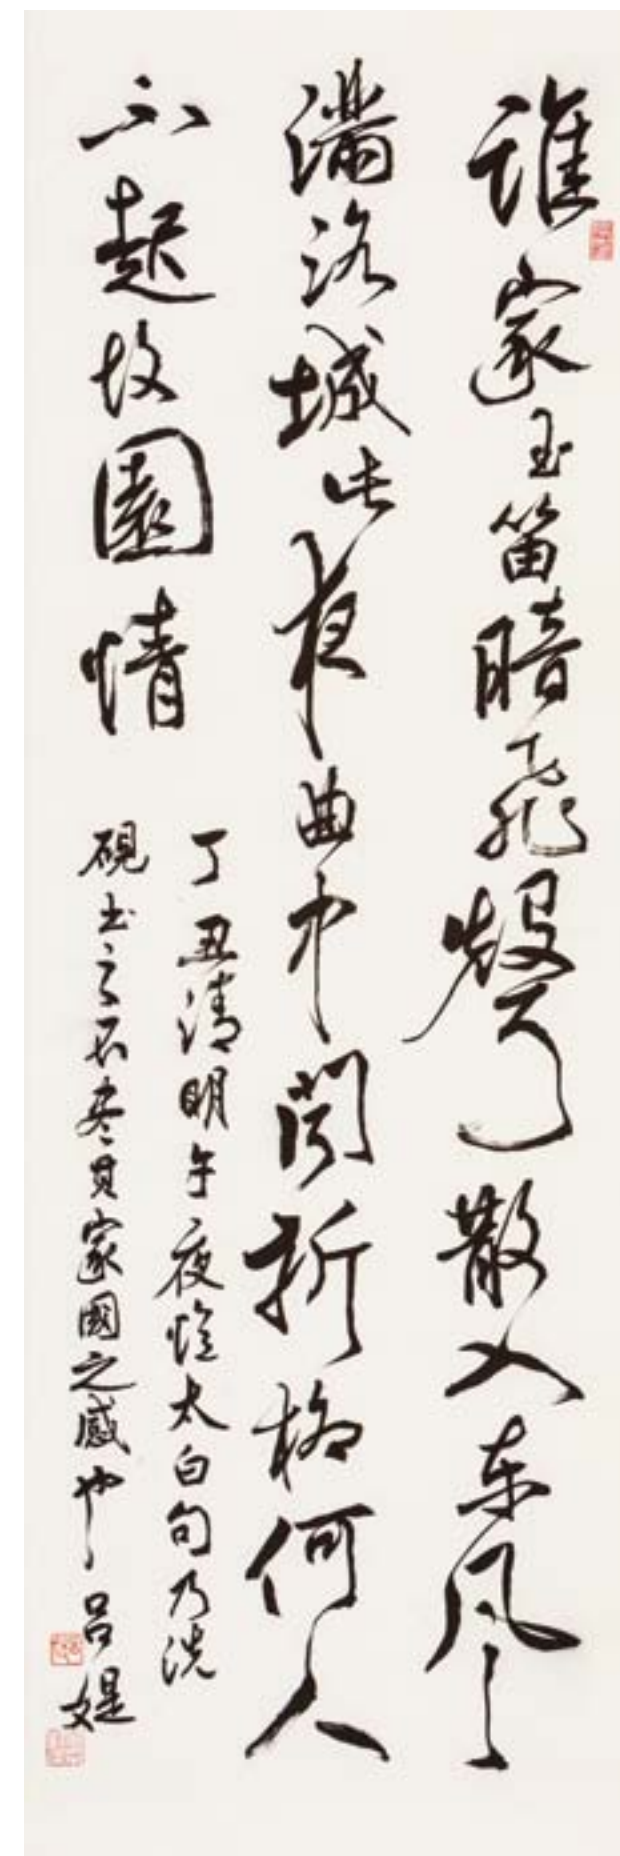 誰家玉笛暗飛聲散入东风
滿洛城此夜曲中闻折柳何人
不起故園情
丁丑清明午夜憶太白句乃洗
硯书之不尽其家國之感也 吕媞